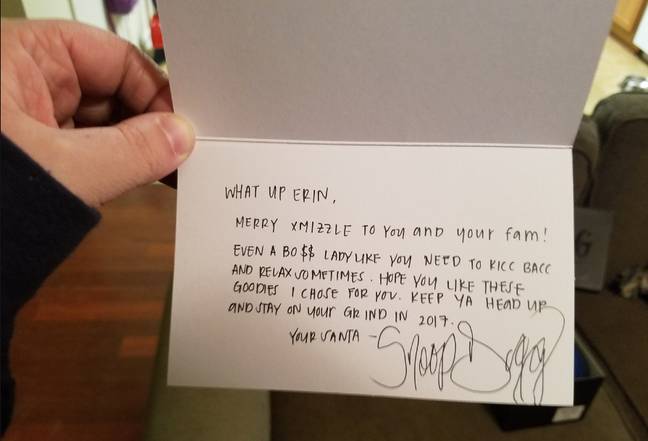 WHAT UP ERIN,
MERRY XMIZZLE TO YOU and your fam!
EVEN A BO$$ LADY LIKE YOU NEED TO KICC BACC
AND RELAX SOMETIMES. HOPE YOU LIKE THESE
GOODIES I CHOSE FOR YOU. KEEP YA HEAD UP
and STAY ON your GRIND IN 2017.
YOUR SANTA - Snoop Dogg
G